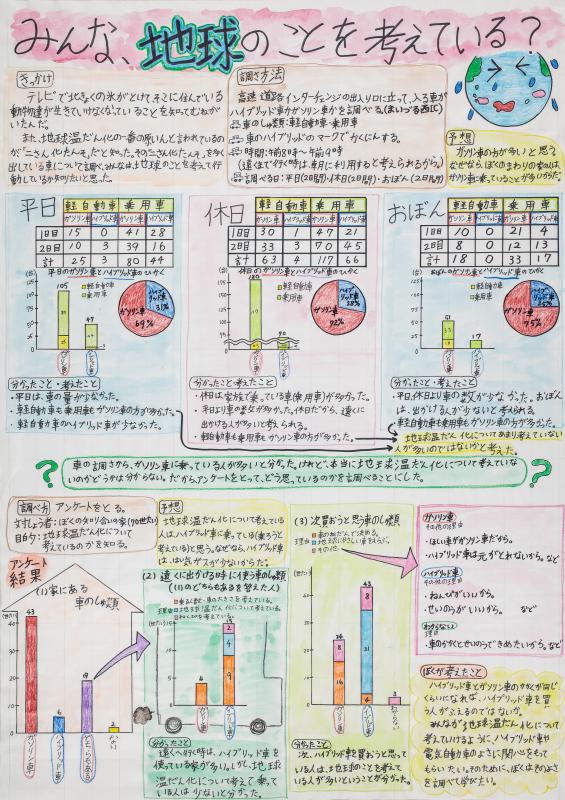 みんな、地球のことを考えている?
きっかけ
テレビで北きょくの氷がとけて、そこに住んでいる
動物達が生きていけなくなっていることを知ってむねが
いたんだ。
また、地球温だん化の一番の原いんと言われているの
が、二さん化たんそだと知った。その二さん化たんそを多く
出している車について調べ、みんなは地球のことを考えて行
動しているか知りたいと思った。
調さ方法
高速道路インターチェンジの出入り口に立って、入る車が
ハイブリッド車かガソリン車かを調べる。(まいづる西IC)
車のしゅ類:軽自動車・乗用車
車のハイブリッドのマークでかくにんする。
時間:午前8時~午前9時
(遠くまで行く時は、車を利用すると考えられるから。)
調べる日:平日(2日間)・休日(2日間)・おぼん(2日間)
予想
ガソリン車の方が多いと思う。
なぜなら、ぼくのまわりの家の人は
ガソリン車に乗っていることが多いから。
平日
軽自動車 乗用車
ガソリン車 ハイブリッド車 ガソリン車 ハイブリッド車
1日目 15 0 41 28
2日目 10 3 39 16
計 25 3 80 44
平日のガソリン車とハイブリッド車のひかく
(台)
105
47
軽自動車
乗用車
ガソリン車
ハイブリッド車
ハイブリッド車 31%
ガソリン車 69%
分かったこと・考えたこと
・平日は、車の量が少なかった。
・軽自動車も乗用車もガソリン車の方が多かった。
・軽自動車のハイブリッド車が少なかった。
休日
軽自動車 乗用車
ガソリン車 ハイブリッド車 ガソリン車 ハイブリッド車
1日目 30 1 47 21
2日目 33 3 70 45
計 63 4 117 66
休日のガソリン車とハイブリッド車のひかく
(台)
180
70
軽自動車
乗用車
ガソリン車
ハイブリッド車
ハイブリッド車 28%
ガソリン車 72%
分かったこと・考えたこと
・休日は家族で乗っている車(乗用車)が多かった。
・平日より車の数が多かった。休日だから、遠くに
出かける人が多いと考えられる。
・軽自動車も乗用車もガソリン車の方が多かった。
おぼん
軽自動車 乗用車
ガソリン車 ハイブリッド車 ガソリン車 ハイブリッド車
1日目 10 0 21 4
2日目 8 0 12 13
計 18 0 33 17
おぼんのガソリン車とハイブリッド車のひかく
(台)
51
17
軽自動車
乗用車
ガソリン車
ハイブリッド車
ハイブリッド車 25%
ガソリン車 75%
分かったこと・考えたこと
・平日、休日より車の数が少なかった。おぼん
は、出かける人が少ないと考えられる。
・軽自動車も乗用車もガソリン車の方が多かった。
地球温だん化についてあまり考えていない
人が多いのではないかと考えた。
車の調さから、ガソリン車に乗っている人が多いと分かった。けれど、本当に地球温だん化について考えていな
いのかどうかは分からない。だから、アンケートをとって、どう思っているのかを調べることにした。
調べ方
アンケートをとる。
対しょう者:ぼくの知り合いの家(70世たい)
目的:地球温だん化について
考えているのかを知る。
予想
地球温だん化について考えている
人はハイブリッド車に乗っている(乗ろう
と考えている)と思う。なぜなら、ハイブリッド車
は、はい気ガスが少ないからだ。
アンケート
結果
(1)家にある
車のしゅ類
(世たい)
43
6
19
2
ガソリン車
ハイブリッド車
どちらもある
ない
(2)遠くに出かける時に使う車のしゅ類
((1)のどちらもあるを答えた人)
(世たい)
4
15
2
4
9
ガソリン車
ハイブリッド車
分かったこと
遠くへ行く時は、ハイブリッド車を
使っている家が多い。しかし、地球
温だん化について考えて乗って
いる人は少ないと分かった。
(3)次買おうと思う車のしゅ類
理由
車のねだんで決める。
地球にやさしい車をえらぶ。
その他。
(世たい)
24
8
16
43
8
31
4
3
ガソリン車
ハイブリッド車
わからない
分かったこと
次、ハイブリッド車を買おうと思って
いる人は、地球のことを考えて
いる人が多いということが分かった。
ガソリン車
その他の理由
・ほしい車がガソリン車だから。
・ハイブリッド車は元がとれないから。など
ハイブリッド車
その他の理由
・ねんぴがいいから。
・せいのうがいいから。 など
わからない
理由
・車のかかくとせいのうできめたいから。など
ぼくが考えたこと
ハイブリッド車とガソリン車のかかくが同じ
くらいになれば、ハイブリッド車を買
う人がふえるのではないか。
みんなが地球温だん化について
考えていけるように、ハイブリッド車や
電気自動車のよさに関心をもって
もらいたい。そのために、ぼくはそのよさ
を調べて学びたい。